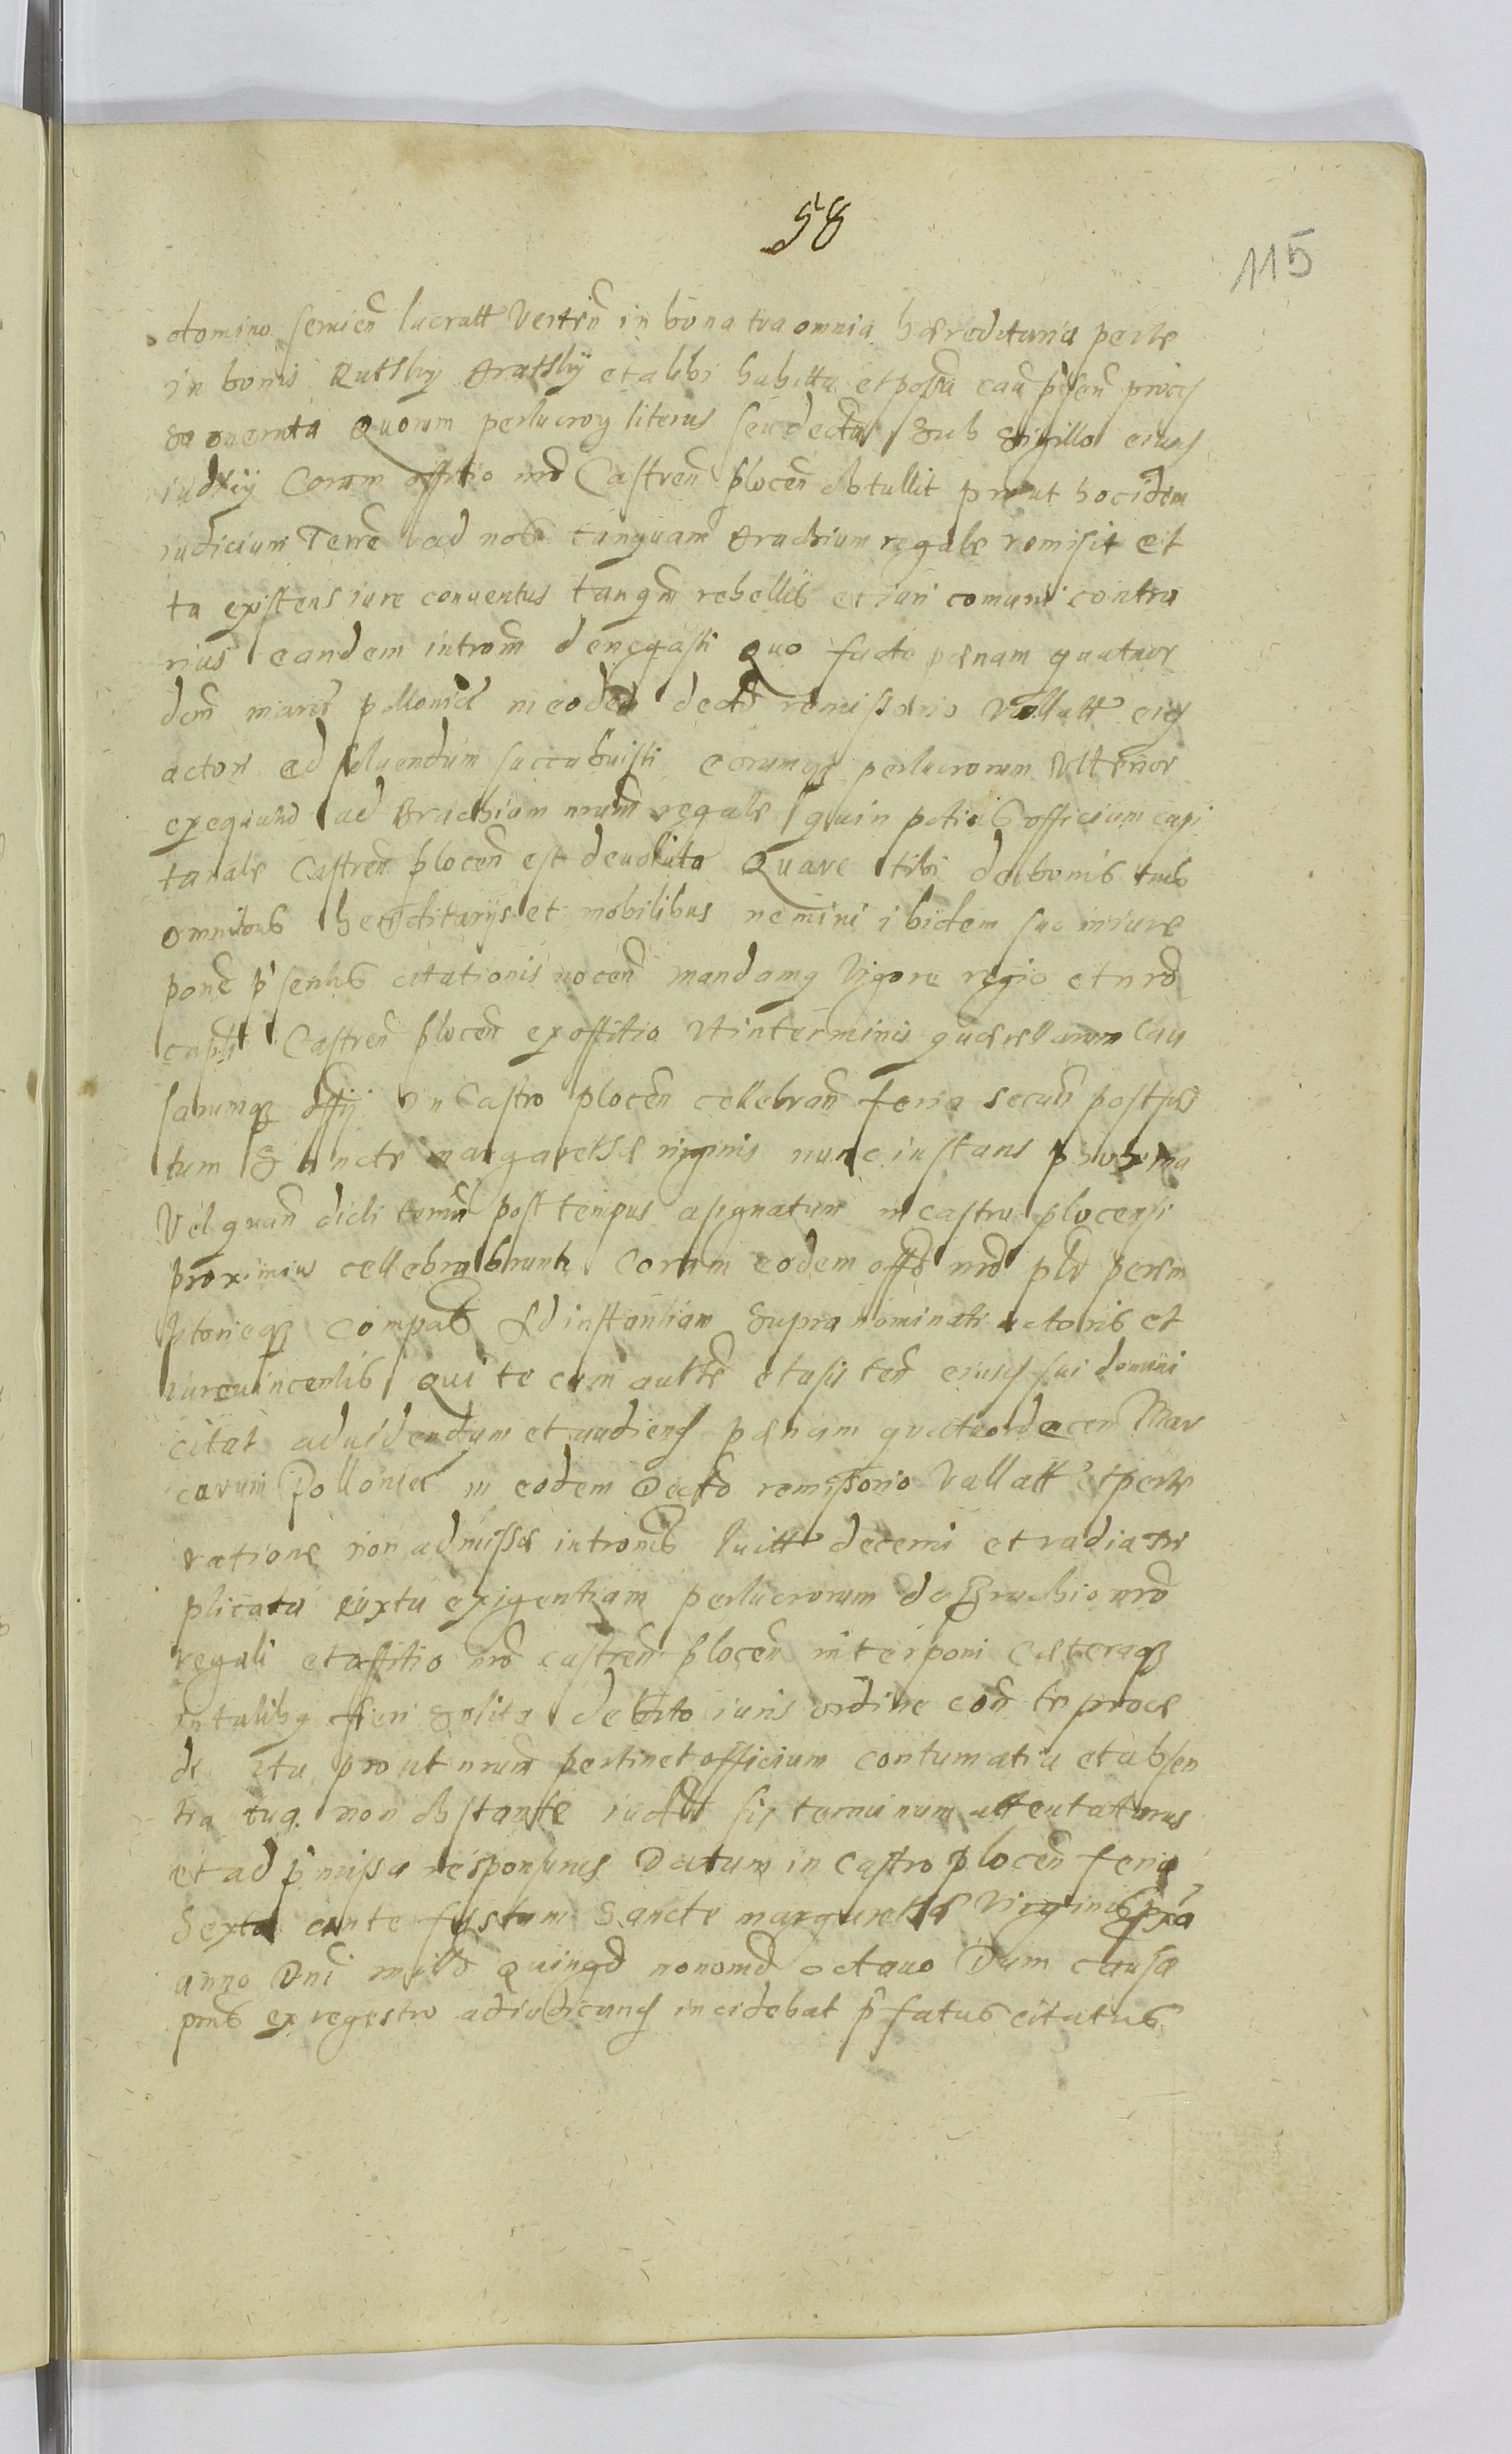 58
115
domino seruien lucratt Verten in bona tua omnia hæreditaria per te
in bonis Rutsky Brutsky et alibi habitta et possa eam psen
Quorum perlucror literas seu dectu Sub Sigillo eius
iudicij Coram offitio nro Castren plocen obtullit prout hoc idem
iudicium Terre ad nos tanquam Brachium regale remisit et
tu existens iure conuentus tanqm rebellis et iuri comuni contra
rius eandem introm denegasti Quo facto pænam quatuor
dem marcr pollonicl in eodem decto remissorio Vallatt eiq
actori ad soluendum succubuisti eorumq perlucrorum Ulterior
exequund ad Brachium nrum regale quin potius officium capi
tanale Castren plocen est deuoluta Quare tibi de bonis tuis
omnibus hereditarijs et mobilibus nemini ibidem suo in iure
pond psentis citationis nocen mandamq Vigore regio et nro
capti Castren plocen ex offitio Ut in terminis quærelarum Cau
sarumq offy in Castro plocen cellebran feria secun post fes
tum Sancte margarethæ virginis nunc instans
Vel quan dicti termi post tempus asignatum in castro plocensi
proximius cellebrabunt Coram eodem offo nro plo perem
ptorieq compas Ad instantiam supra nominati actoris et
iureuincentis Qui te cum auttte et asis ten eiusq sui domini
citat ad uidendum et audienq pænam quatuordecem Mar
carum Pollonicl in eodem Decto remissorio Vallatt per te
ratione non admissæ intromis luitt decerni et vadia tri
plicata iuxta exigentiam perlucrorum de Brachio nro
regali et offitio nro castren plocen interponi Cæteraq
in talibq fieri solita debito iuris ordine con te proce
di Ita prout nrum pertinet officium contumatia et absen
tia tua non obstante iudt sis terminum attentaturus
et ad pmissa responsurus Datum in Castro plocen feria
Sexta ante festum Sancte margarethæ Virginis pxa
anno Dni millo Quingo nonomo octauo Dum causa
pns ex regestro adiudicanq incidebat pfatus citatus